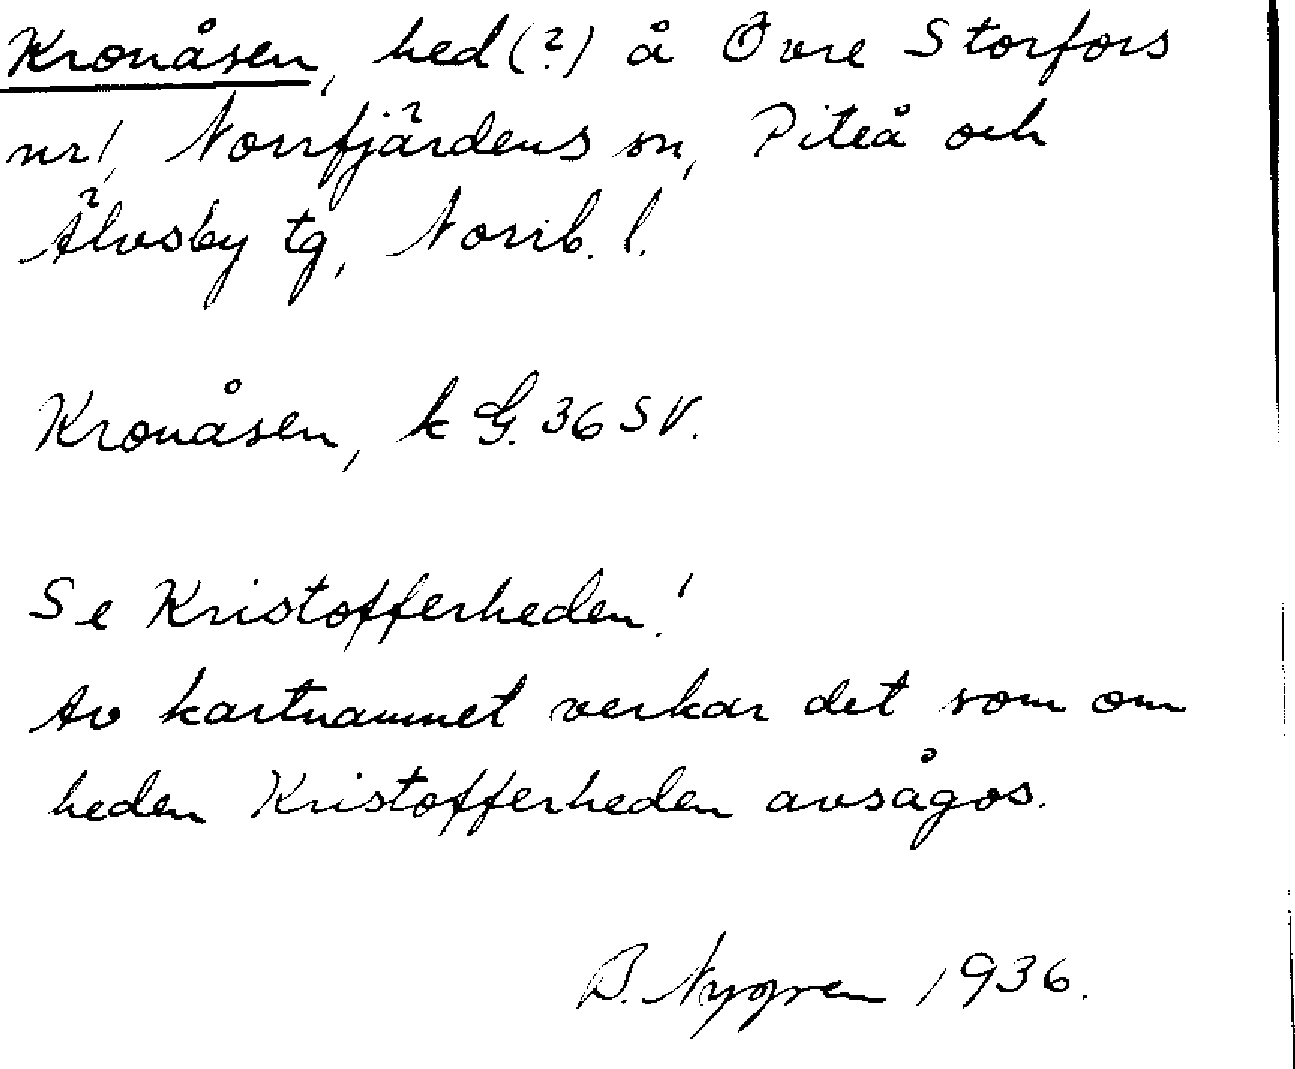 Kronåsen, hed (?) å Övre Storfors
nr 1, Norrfjärdens sn, Piteå och
Älvsby tg, Norrb. l.
Kronåsen, k G. 36 SV.
Se Kristofferheden!
Av kartnamnet verkar det som om
heden Kristofferheden avsågos.
B. Nygren 1936.